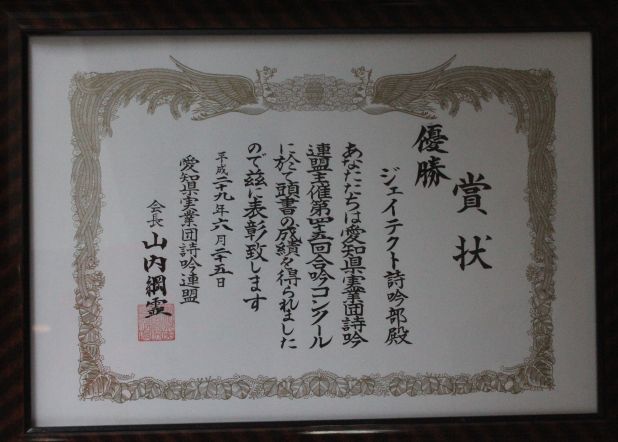 賞状
優勝
ジェイテクト詩吟部殿
あなたたちは愛知県実業団詩吟
連盟主催第四十五回合吟コンクール
に於て頭書の成績を得られました
ので茲に表彰致します
平成二十九年六月二十五日
愛知県実業団詩吟連盟
会長 山内綱霊